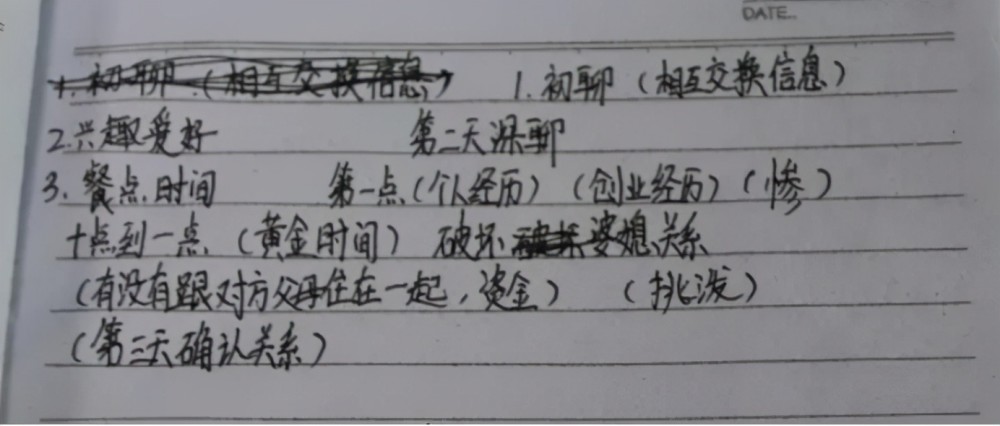 DATE.
1. 初聊（相互交换信息） 1. 初聊（相互交换信息）
2. 兴趣爱好 第二天深聊
3. 餐点时间 第一点（个人经历）（创业经历）（惨）
十点到一点（黄金时间） 破坏 破坏 婆媳关系
（有没有跟对方父母住在一起，资金） （挑泼）
（第三天确认关系）